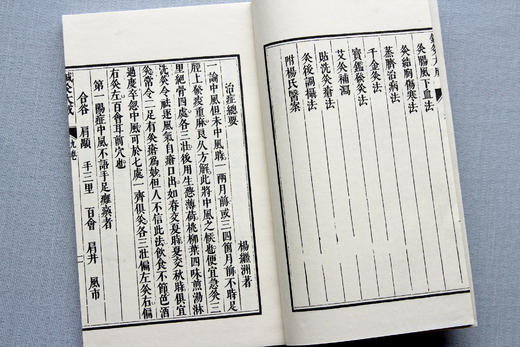 灸腸風下血法
灸結胸傷寒法
蒸臍治病法
千金灸法
寶鑑發灸法
艾灸補瀉
貼洗灸瘡法
灸後調攝法
附楊氏醫案
楊繼洲著
治症總要
一論中風但未中風時一兩月前或三四個月前不時足
脛上發痠重麻良久方解此將中風之候也便宜急灸三
里絕骨四處各三壯後用生葱薄荷桃柳葉四味煎湯淋
洗灸令祛逐風氣自瘡口出如春交夏時夏交秋時俱宜
灸常令二足有灸瘡為妙但人不信此法飲食不節色酒
過度卒忽中風可於七處一齊俱灸各三壯偏左灸右偏
右灸左百會耳前穴也
第一陽症中風不語手足癱瘓者
合谷 肩髃 手三里 百會 肩井 風市
九卷